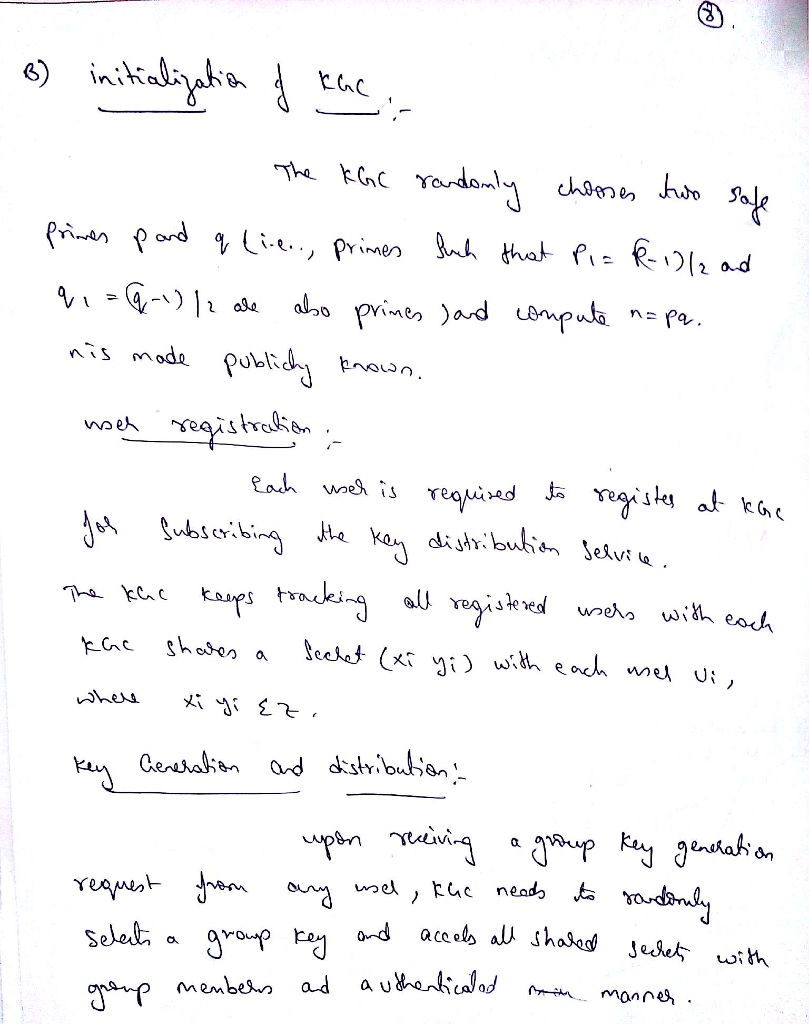 (8).
B) initialization of KGC :-
The KGC randomly chooses two safe
primes p and q (i.e., primes such that P1 = (P-1)/2 ad
q1 = (q-1)/2 are also primes ) and compute n = pq.
n is made publicly known.
user registration :-
Each user is required to register at KGC
for subscribing the key distribution service.
The KGC keeps tracking all registered users with each
KGC shares a secret (xi yi) with each user Ui,
where xi yi ε z.
Key Generation and distribution :-
upon receiving a group key generation
request from any user, KGC needs to randomly
selects a group key and access all shared secrets with
group members ad authenticated manner.